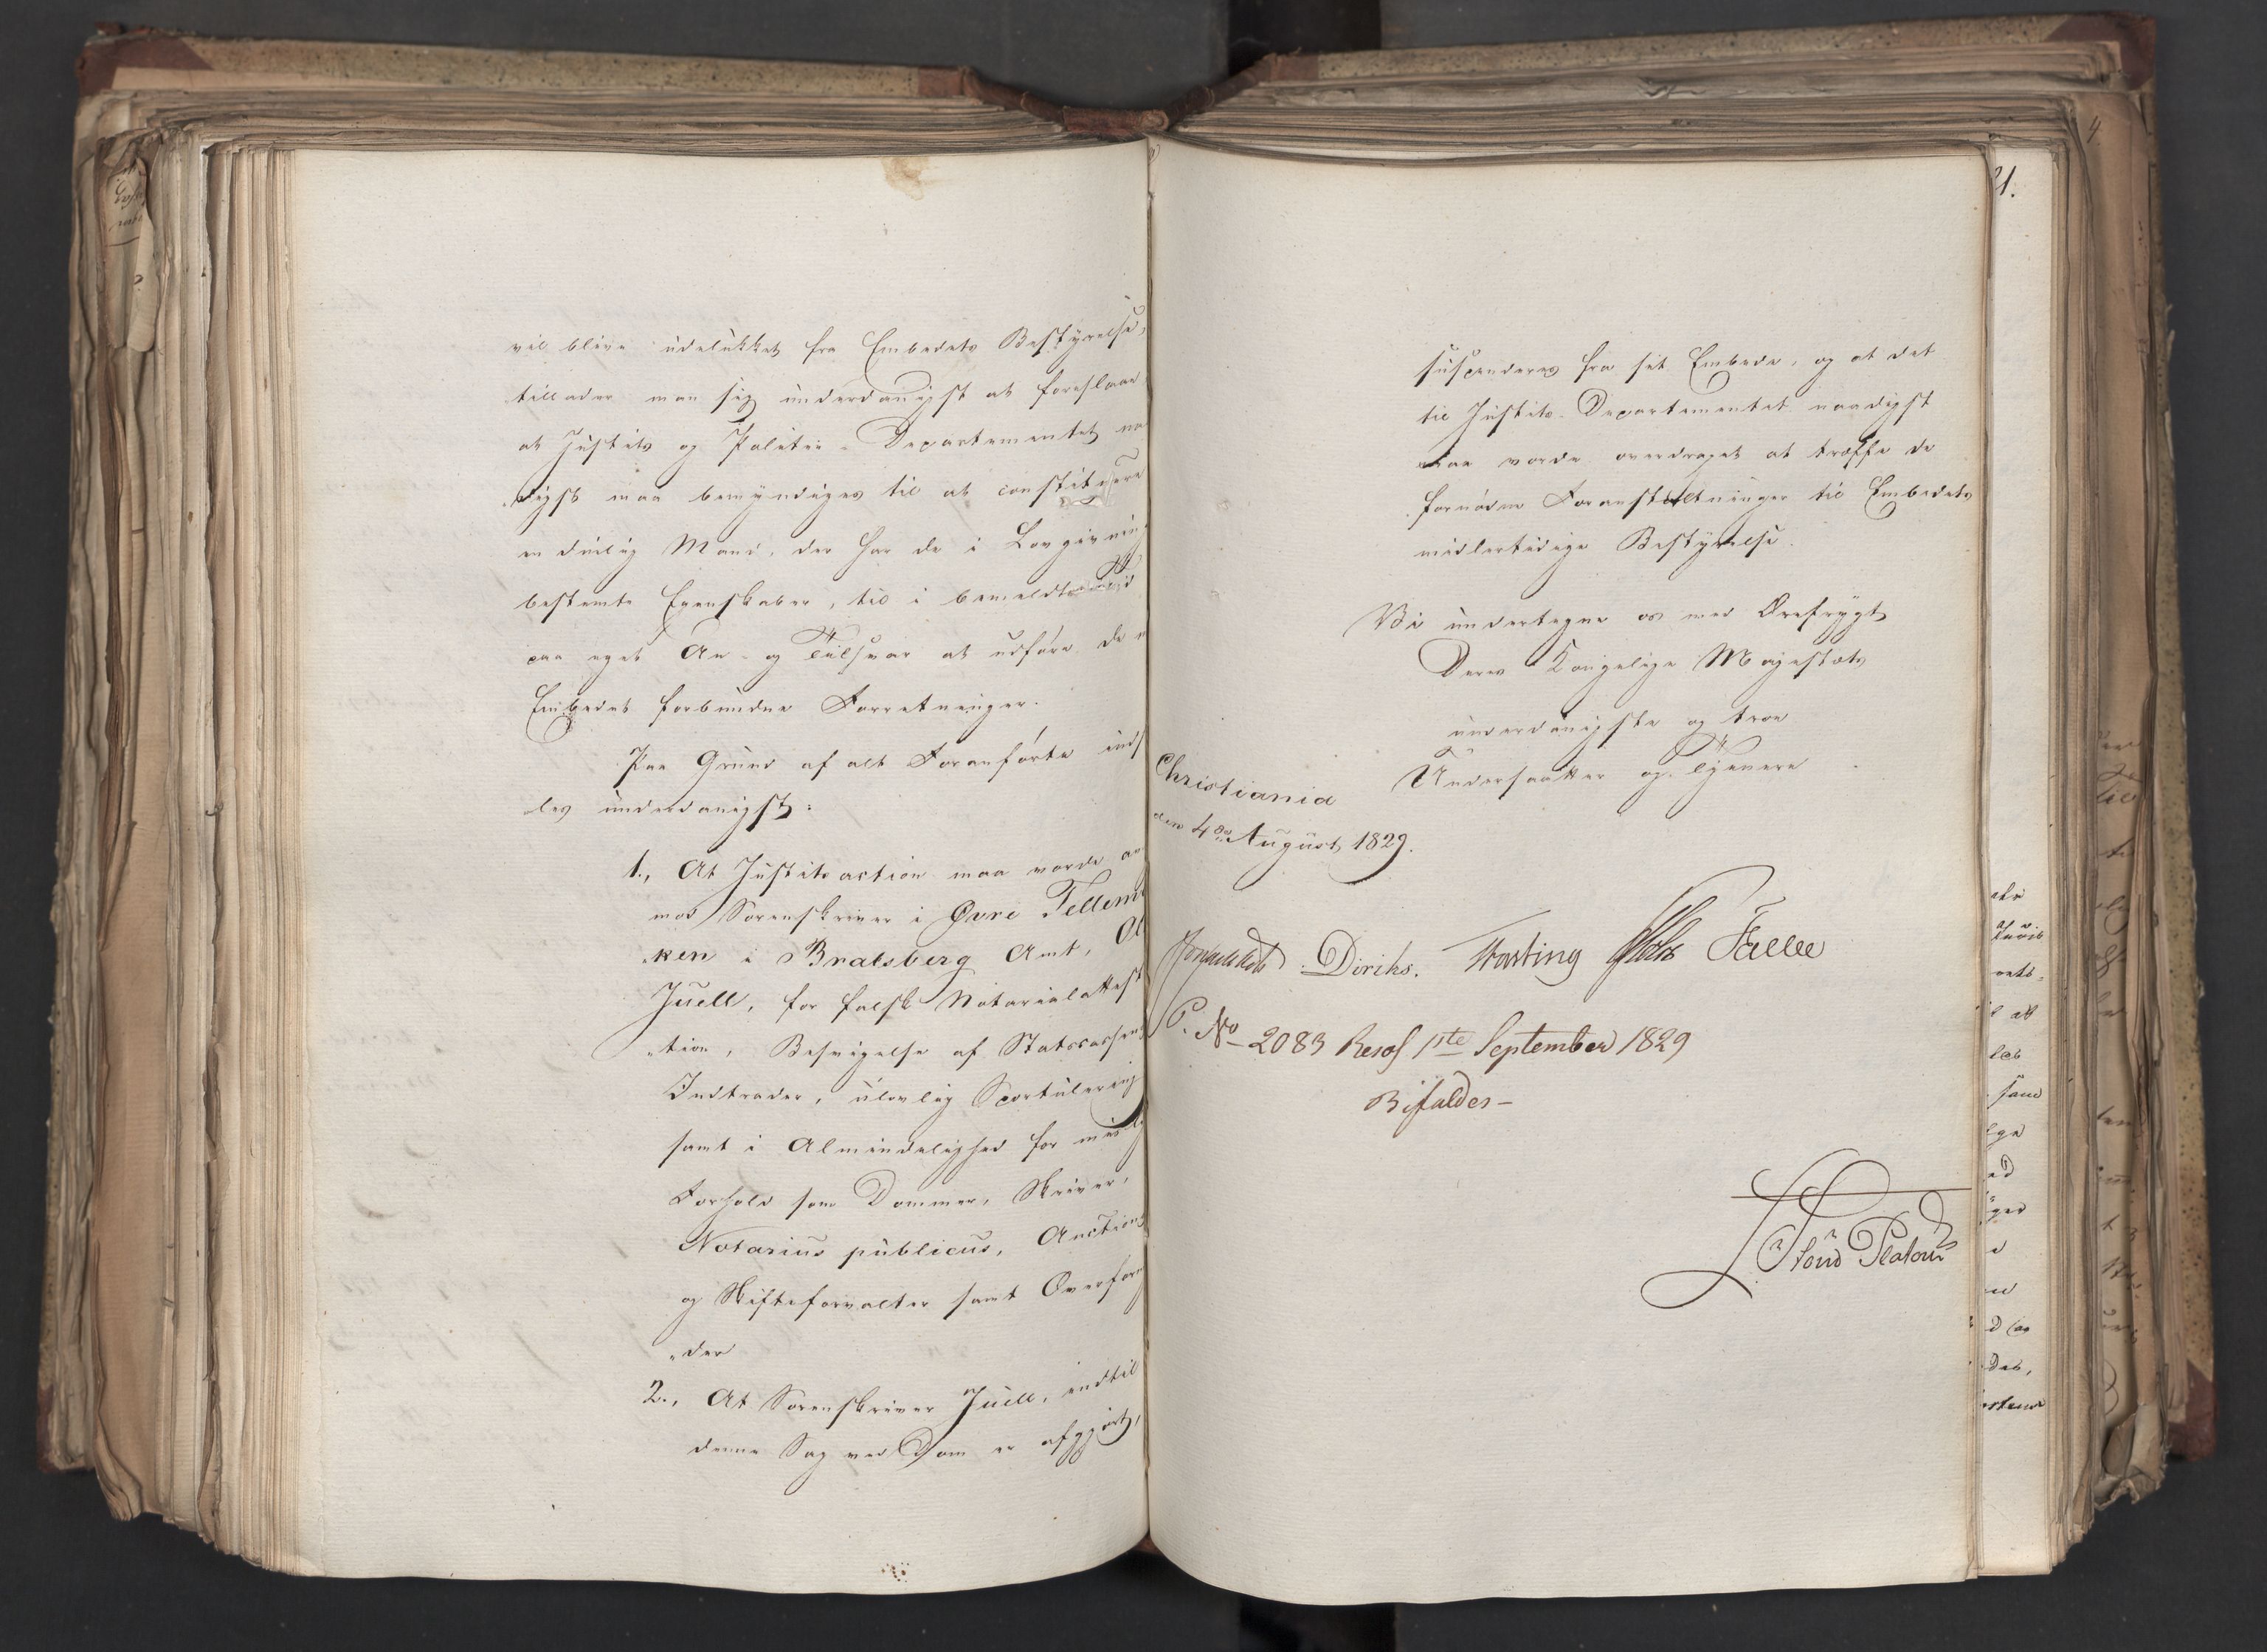 vil blive udelukket fra Embedets Bestyrelse,
tillader man sig underdanigst at foreslaae
at Justits og Politie-Departementet na
digst maa bemyndiges til at constituere
en duelig Mand, der har de i Lovgivning
bestemte Egenskaber, til i bemeldte Tid
paa eget An- og Tilsvar at udføre de
Embedet forbundne Forretninger.
Paa Grund af alt Foranførte inds
les underdanigst:
1., At Justitsaction maa vorde an
mod Sorenskriver i Øvre Tellem
„ken i Bratsberg Amt,
Juell, for falsk Notarialattest
„tion, Besvigelse af Statscassens
Indtrader, ulovlig Sportulering
samt i Almindelighed for misl
Forhold som Dommer, Skriver,
Notarius publicus, Auctions
og Skifteforvalter samt Overfor
„der
2., At Sorenskriver Juell, indtil
denne Sag ved Dom er afgjort,
suspenderes fra sit Embede, og at det
til Justits-Departementet naadigst
maa vorde overdraget at træffe de
fornødne Foranstaltninger til Embedets
midlertidige Bestyrelse.
Vi undertegne os med Ærefrygt
Deres Kongelige Majestæts
underdanigste og troe
Undersaatter og Tjenere
Christiania
den 4de August 1829.
Diriks. Holst Fasting
P. No 2083 Resol 1ste September 1829
Bifaldes-